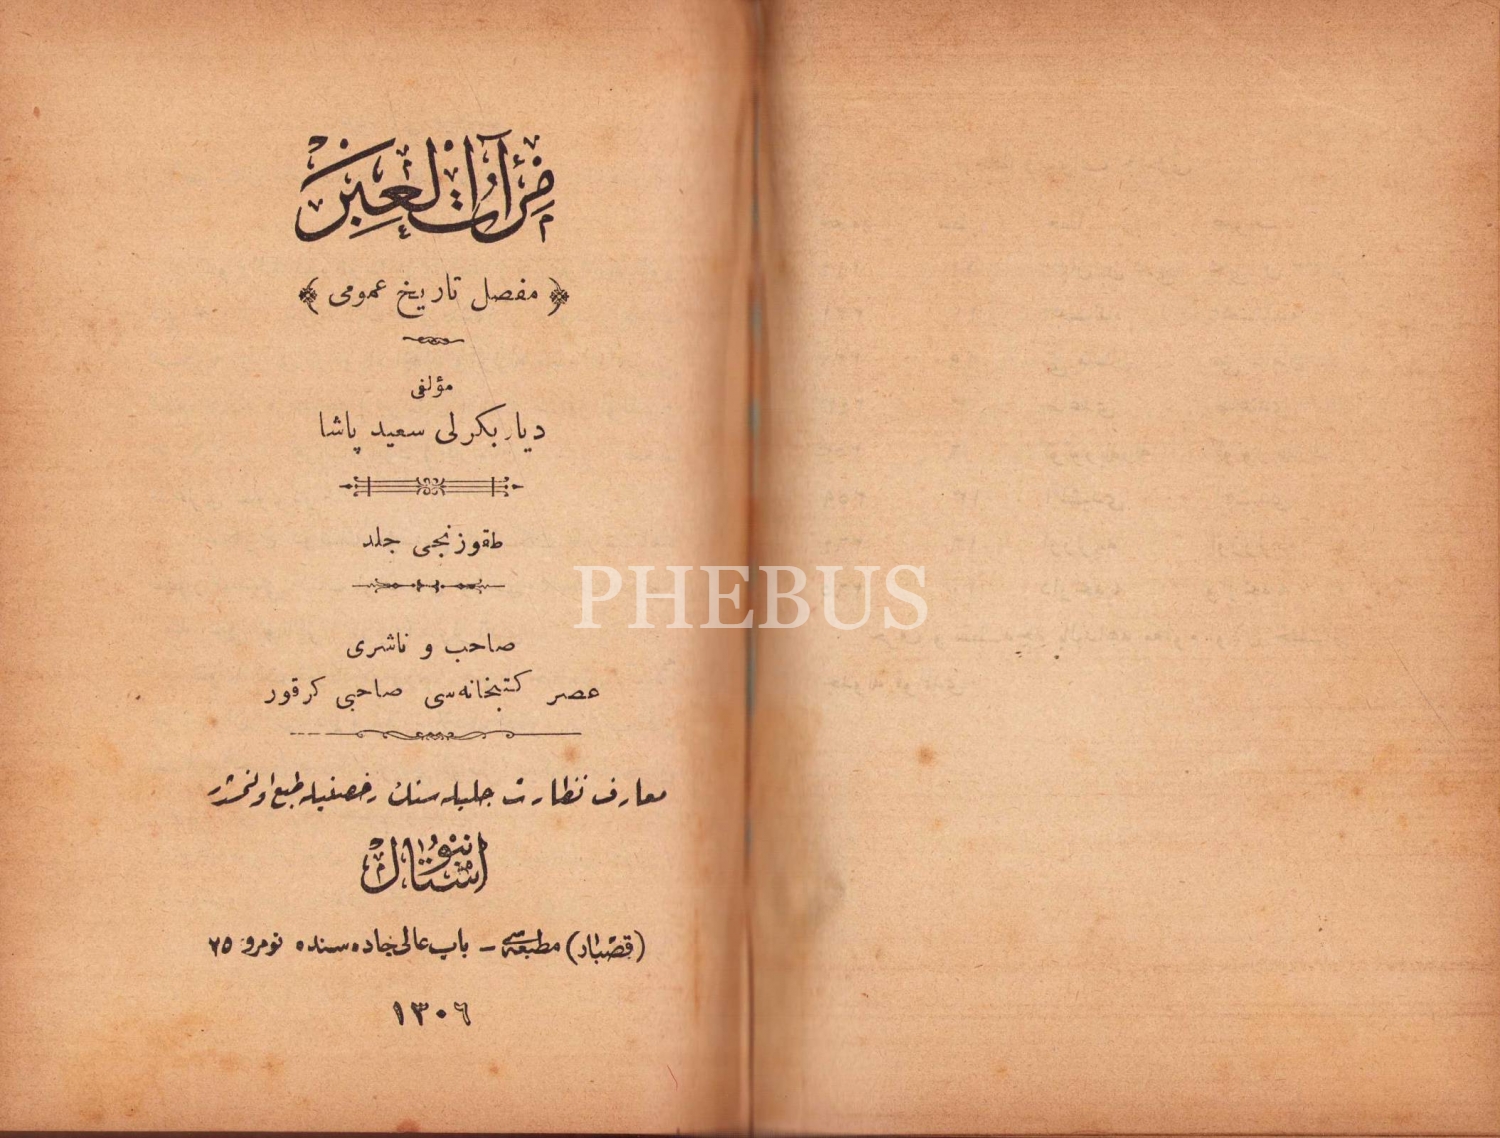 مرآت العبر
﴿ مفصل تاريخ عمومى ﴾
مؤلفى
ديار بكرلى سعيد پاشا
طقوزنجى جلد
صاحب و ناشرى
عصر كتبخانه‌سى صاحبى كرقور
معارف نظارت جليله سنك رخصتيله طبع اولنمشدر
استانبول
(قصبار) مطبعه‌سى – باب عالى جاده سنده نومرو ٢٥
١٣٠٦
PHEBUS